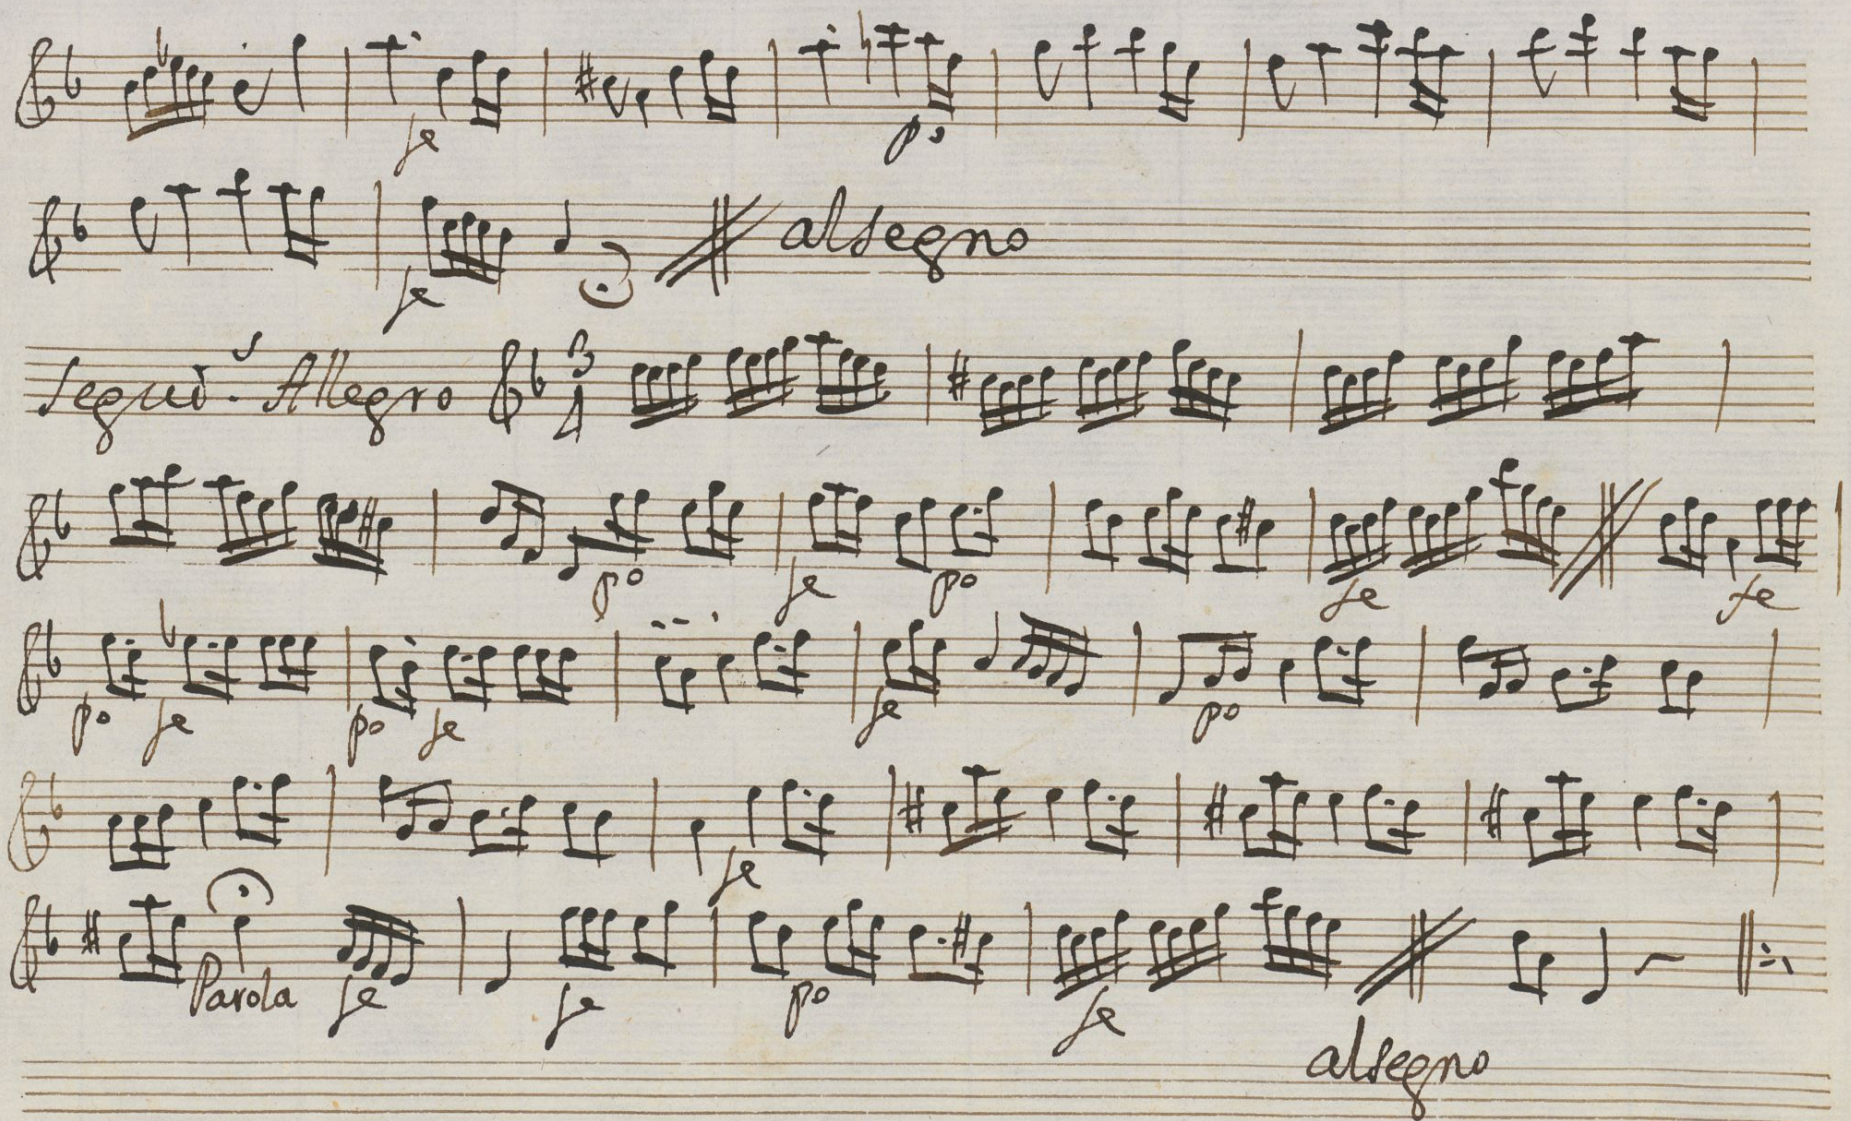 fe po
fe al segno
Seguid.s Allegro 3 4
po fe po fe fe
po fe po fe fe po
fe
Parola fe fe po fe
al segno